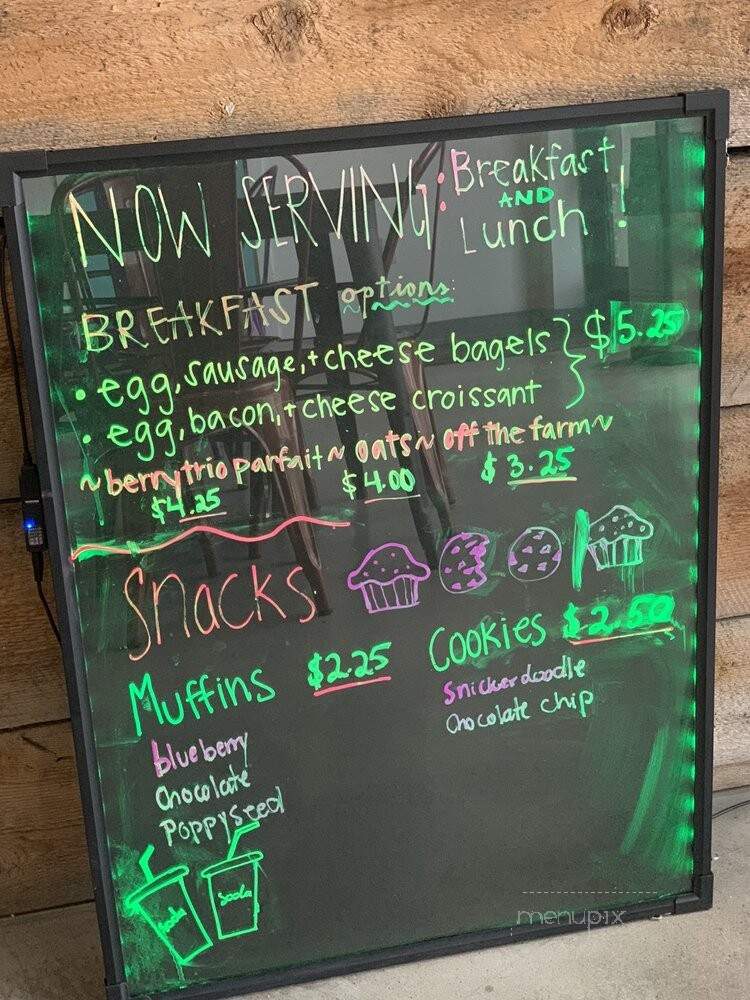 NOW SERVING: Breakfast
AND
Lunch !
BREAKFAST options:
• egg, sausage, + cheese bagels } $5.25
• egg, bacon, + cheese croissant
~ berry trio parfait ~ oats ~ off the farm ~
$4.25 $4.00 $3.25
Snacks
Muffins $2.25
blueberry
Chocolate
Poppyseed
Cookies $2.50
Snickerdoodle
Chocolate chip
soda soda
menupix